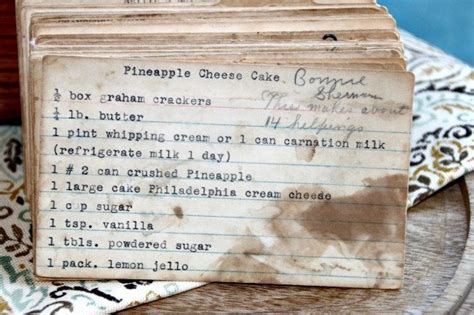 Pineapple Cheese Cake. Bonnie
Sherman
½ box graham crackers
This makes about
½ lb. butter
14 helpings
1 pint whipping cream or 1 can carnation milk
(refrigerate milk 1 day)
1 # 2 can crushed Pineapple
1 large cake Philadelphia cream cheese
1 c p sugar
1 tsp. vanilla
1 tbls. powdered sugar
1 pack. lemon jello